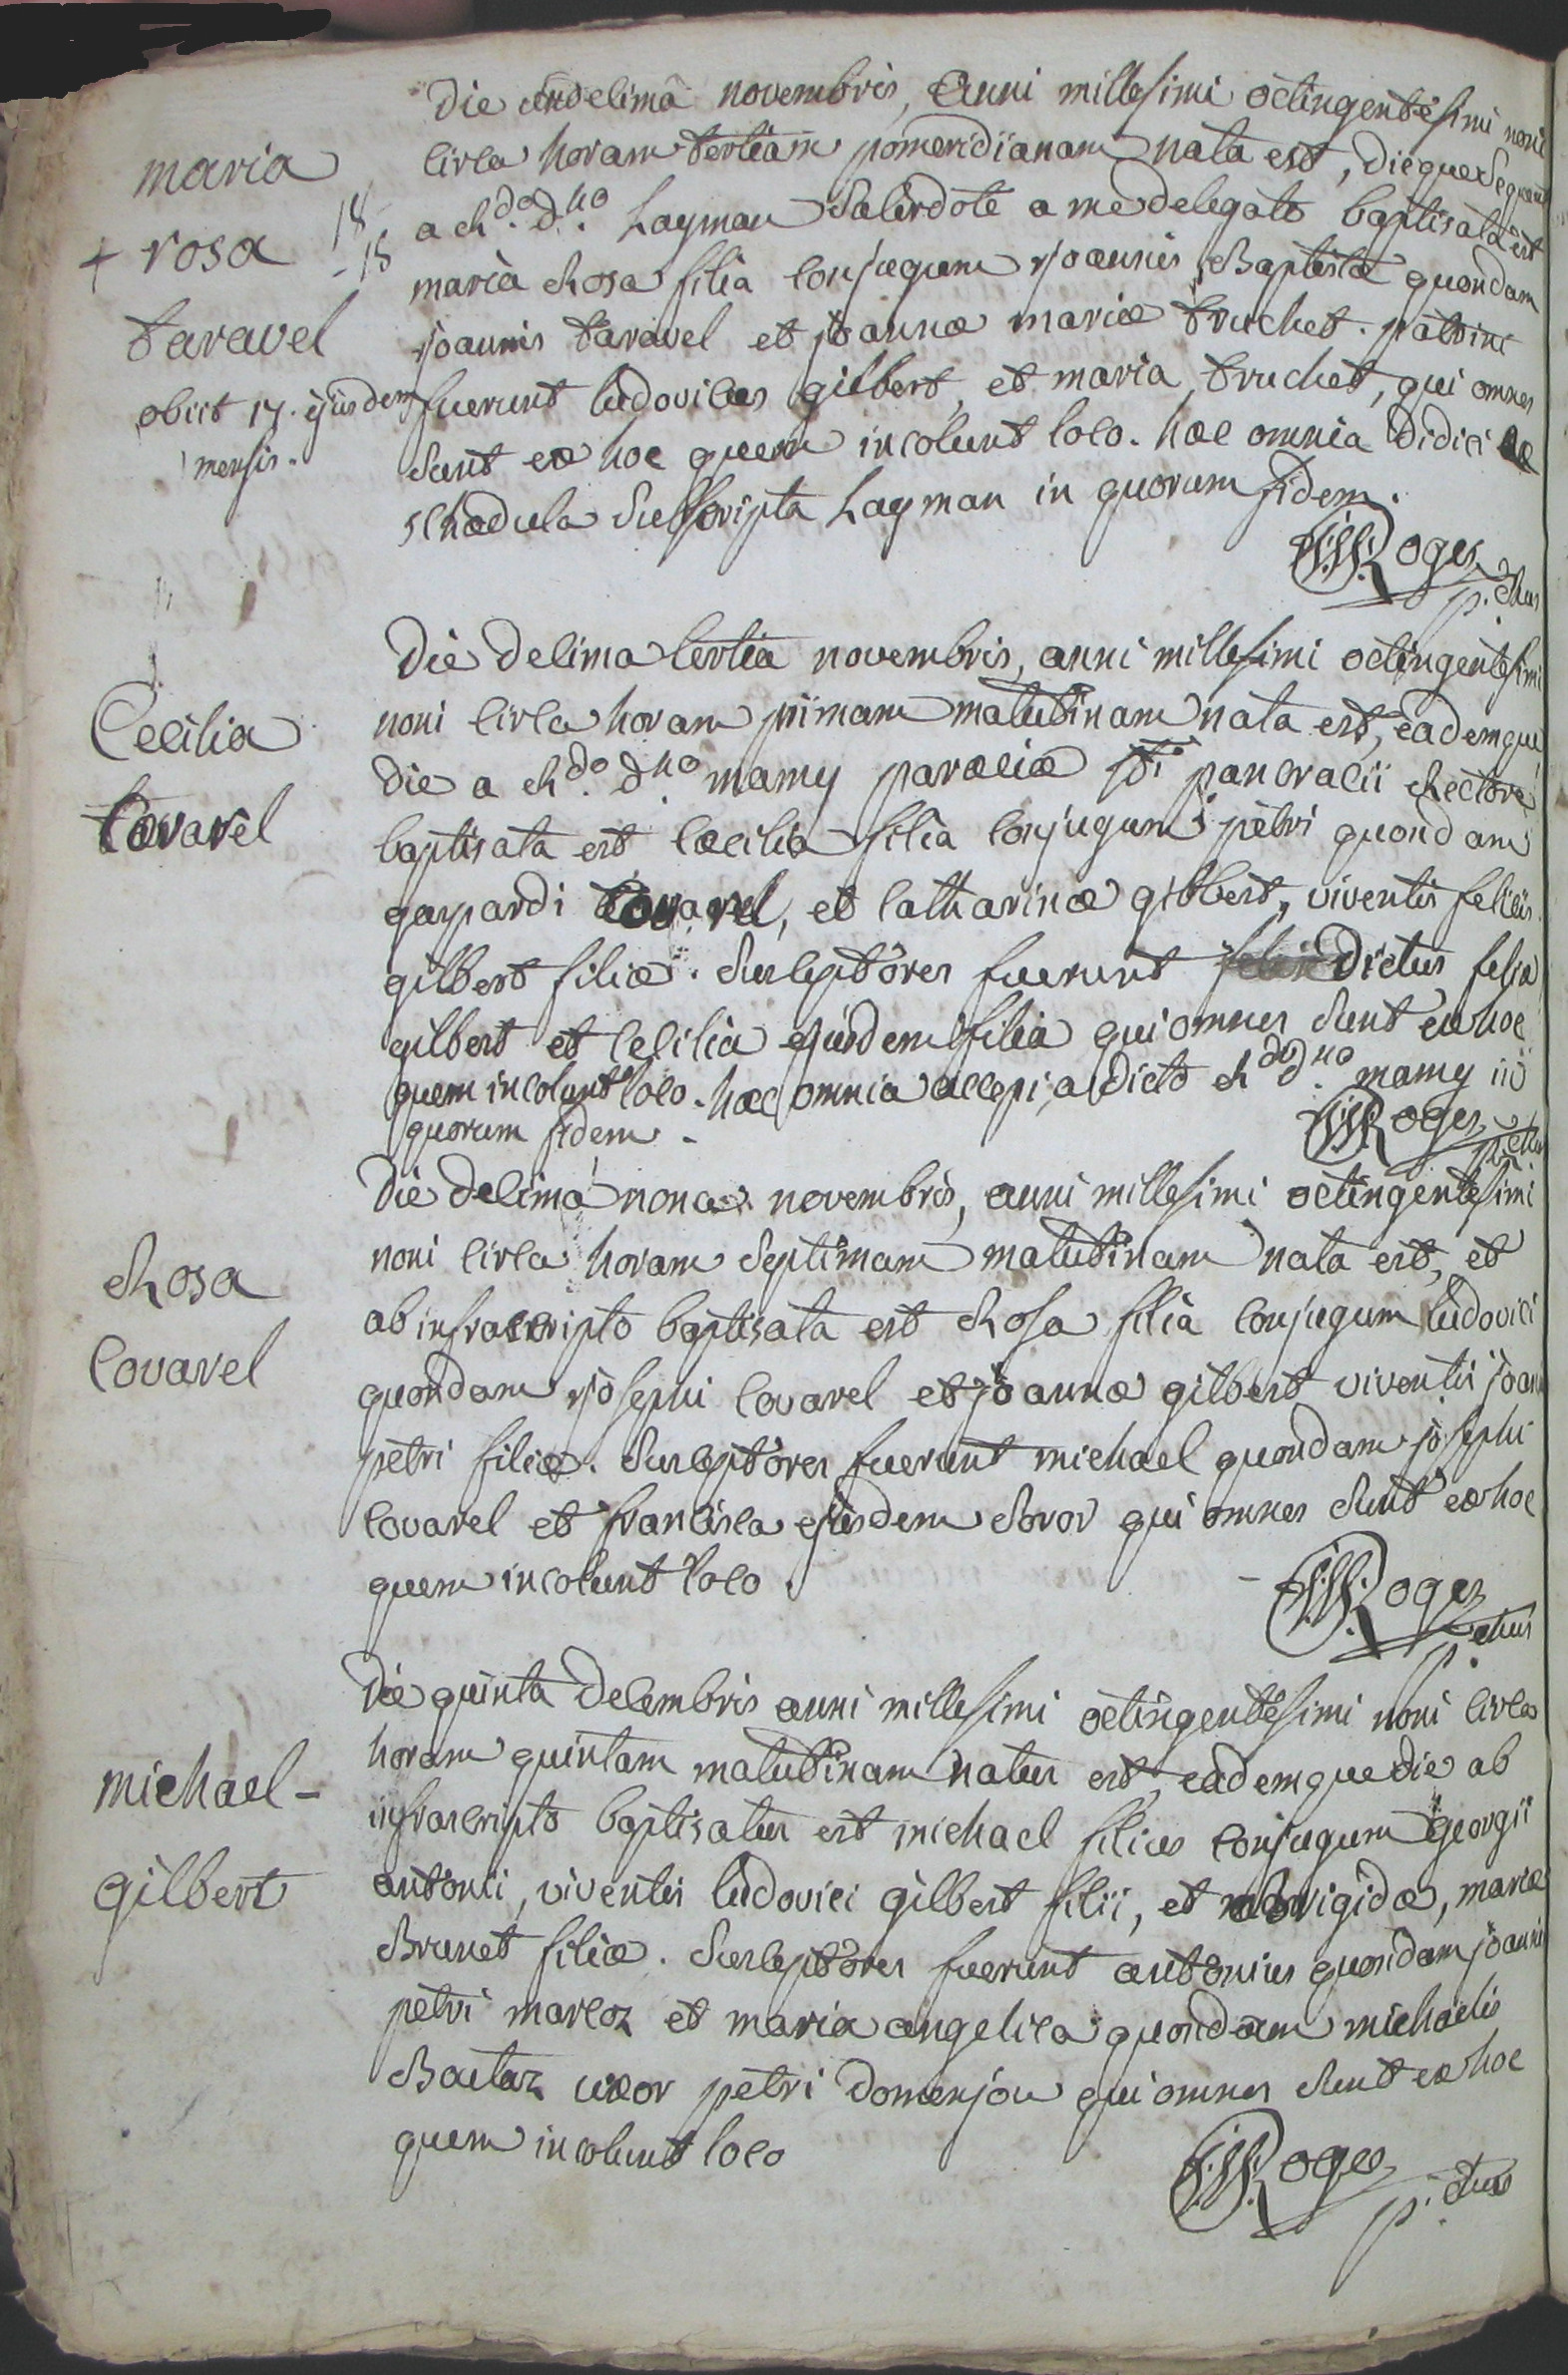 Die undecima novembris, anni millesimi octingentesimi noni
circa horam tertiam pomeridianam nata est, dieque sequenti
maria
a Rdo. Dno. Layman sacerdote a me delegato baptisata est
+ rosa
18
- 18
maria Rosa filia conjugum joannis Baptistæ quondam
taravel
joannis taravel et joannæ mariæ truchet. patrini
obiit 17. ejusdem
mensis.
fuerunt ludovicus gilbert, et maria truchet, qui omnes
sunt ex hoc quem incolunt loco. hæc omnia didici ex
schædula subscripta Layman in quorum fidem.
Roger
p. chus
Die decima tertia novembris, anni millesimi octingentesimi
Cecilia
noni circa horam primam matutinam nata est, eademque
die a Rdo. Dno. mamy paræciæ sti pancracii Rectore
covarel
baptisata est cæcilia filia conjugum petri quondam
gaspardi covarel, et catharinæ gilbert, viventis felicis
gilbert filiæ. susceptores fuerunt dictus felix
gilbert et cecilia ejusdem filia qui omnes sunt ex hoc
quem incolunt loco. hæc omnia accepi a dicto Rdo Dno. mamy in
quorum fidem.
Roger
p. chus
Die decima nona novembris, anni millesimi octingentesimi
Rosa
noni circa horam septimam matutinam nata est, et
ab infrascripto baptisata est Rosa filia conjugum ludovici
covarel
quondam josephi covarel et joannæ gilbert viventis joannis
petri filiæ. susceptores fuerunt michael quondam josephi
covarel et francisca ejusdem soror qui omnes sunt ex hoc
quem incolunt loco.
Roger
p. chus
Die quinta decembris anni millesimi octingentesimi noni circa
michael -
horam quintam matutinam natus est, eademque die ab
infrascripto baptisatus est michael filius conjugum georgii
gilbert
antonii, viventis ludovici gilbert filii, et brigidæ, mariæ
Brunet filiæ. susceptores fuerunt antonius quondam joannis
petri marcoz et maria angelica quondam michaelis
Baitaz uxor petri domenjou qui omnes sunt ex hoc
quem incolunt loco
Roger
p. chus